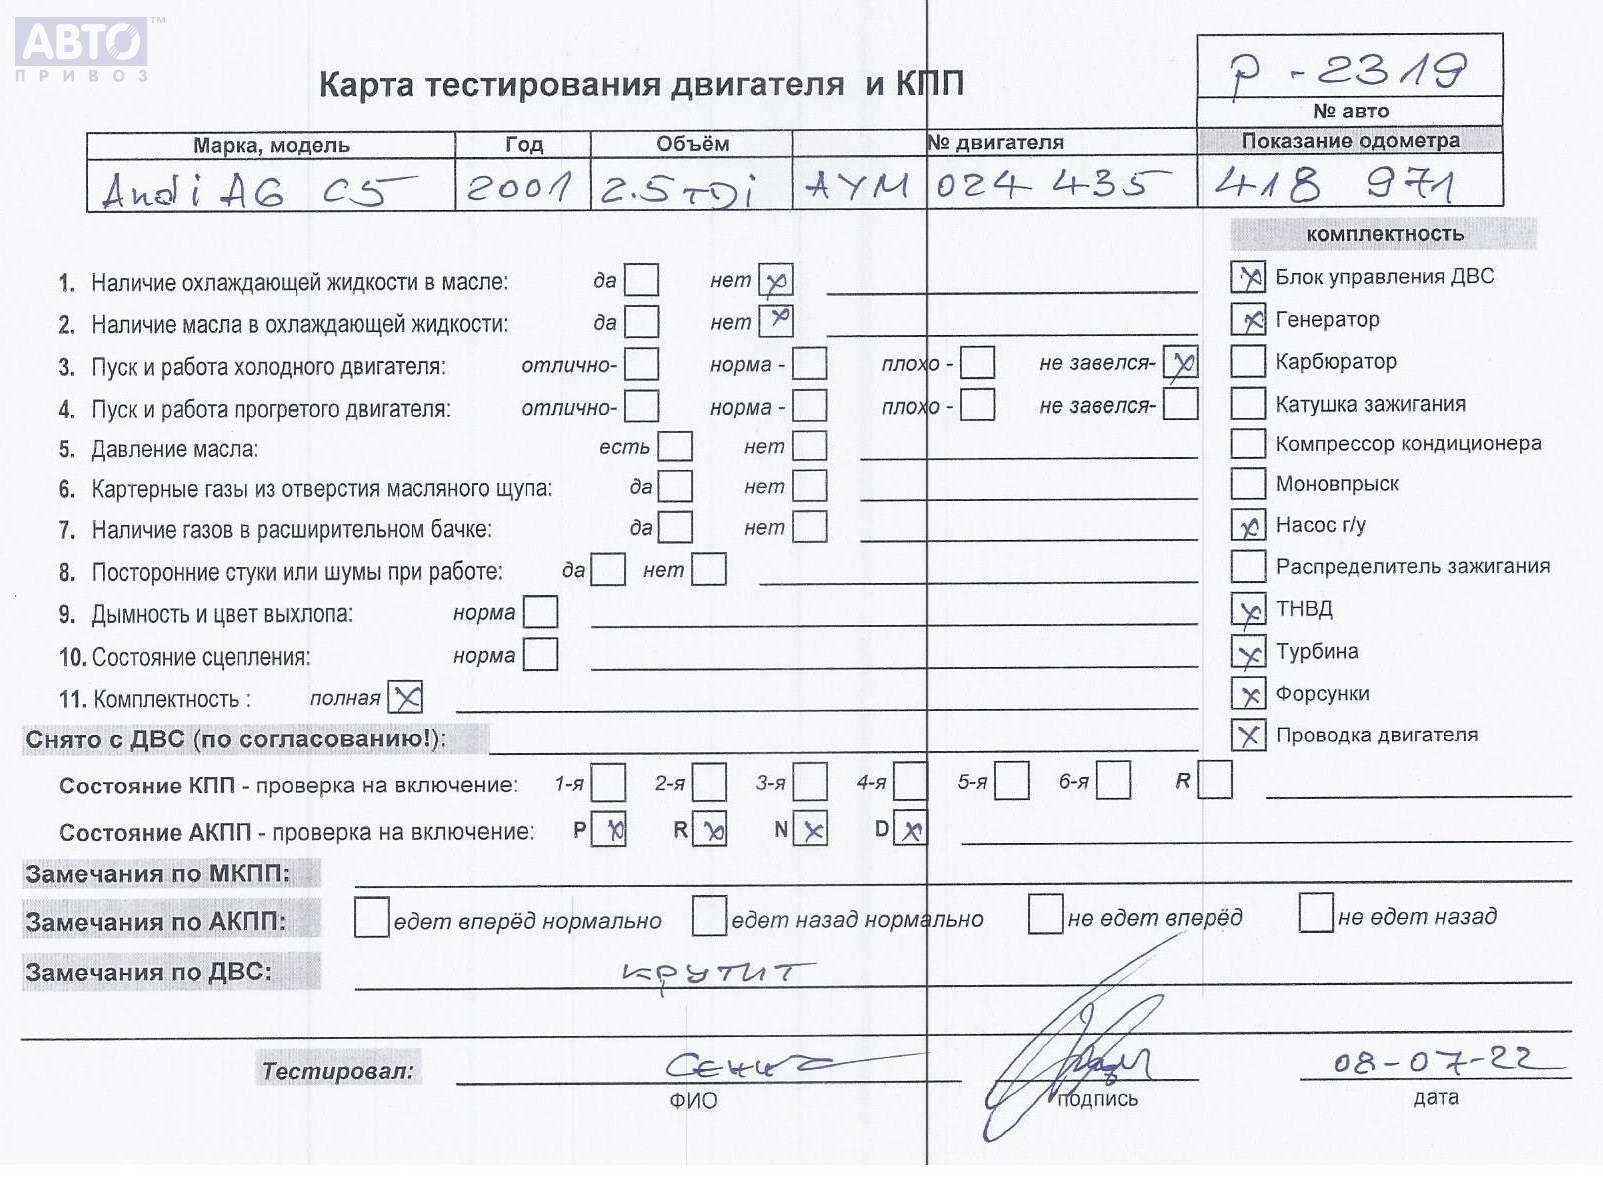 АВТО ТМ
ПРИВОЗ
Карта тестирования двигателя и КПП
Р - 2319
№ авто
Марка, модель Год Объём № двигателя Показание одометра
Audi A6 C5 2001 2.5 TDi AYM 024 435 418 971
комплектность
1. Наличие охлаждающей жидкости в масле: да нет x x Блок управления ДВС
2. Наличие масла в охлаждающей жидкости: да нет x x Генератор
3. Пуск и работа холодного двигателя: отлично- норма - плохо - не завелся- x Карбюратор
4. Пуск и работа прогретого двигателя: отлично- норма - плохо - не завелся- Катушка зажигания
5. Давление масла: есть нет Компрессор кондиционера
6. Картерные газы из отверстия масляного щупа: да нет Моновпрыск
7. Наличие газов в расширительном бачке: да нет x Насос г/у
8. Посторонние стуки или шумы при работе: да нет Распределитель зажигания
9. Дымность и цвет выхлопа: норма x ТНВД
10. Состояние сцепления: норма x Турбина
11. Комплектность : полная x x Форсунки
Снято с ДВС (по согласованию!): x Проводка двигателя
Состояние КПП - проверка на включение: 1-я 2-я 3-я 4-я 5-я 6-я R
Состояние АКПП - проверка на включение: P x R x N x D x
Замечания по МКПП:
Замечания по АКПП: едет вперёд нормально едет назад нормально не едет вперёд не едет назад
Замечания по ДВС: крутит
Тестировал: 08-07-22
ФИО подпись дата